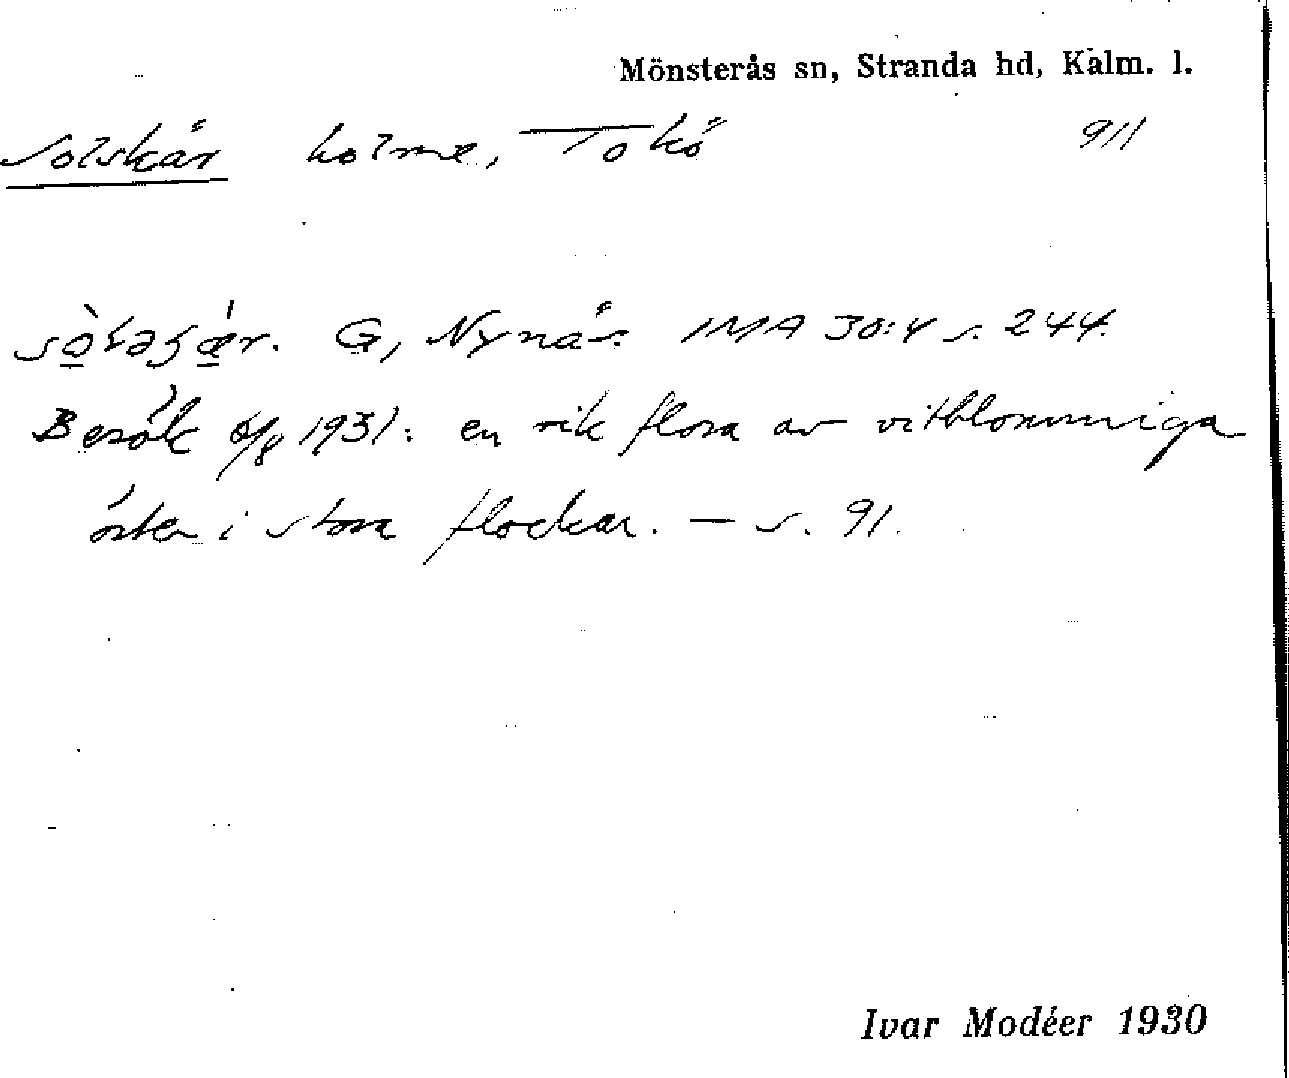 Mönsterås sn, Stranda hd, Kalm. l.
Solskär holme, Tokö 911
G, Nynäs. IMA 30:4 s. 244.
Besök 6/8 1931: en rik flora av vitblommiga
örter i stora flockar. — s. 91.
Ivar Modéer 1930